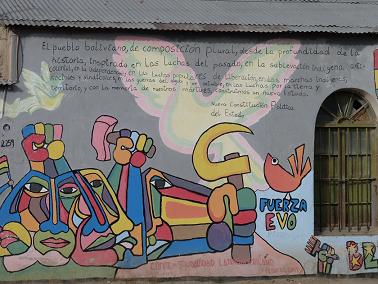 El pueblo boliviano, de composición plural, desde la profundidad de la
historia, inspirado en las luchas del pasado, en la sublevación indígena anti-
colonial, en la independencia, en las luchas populares de liberación, en las marchas indígenas,
sociales y sindicales, en las guerras del agua y de octubre, en las luchas por la tierra y
territorio, y con la memoria de nuestros mártires, construimos un nuevo Estado.
Nueva Constitución Política
del Estado
FUERZA
EVO